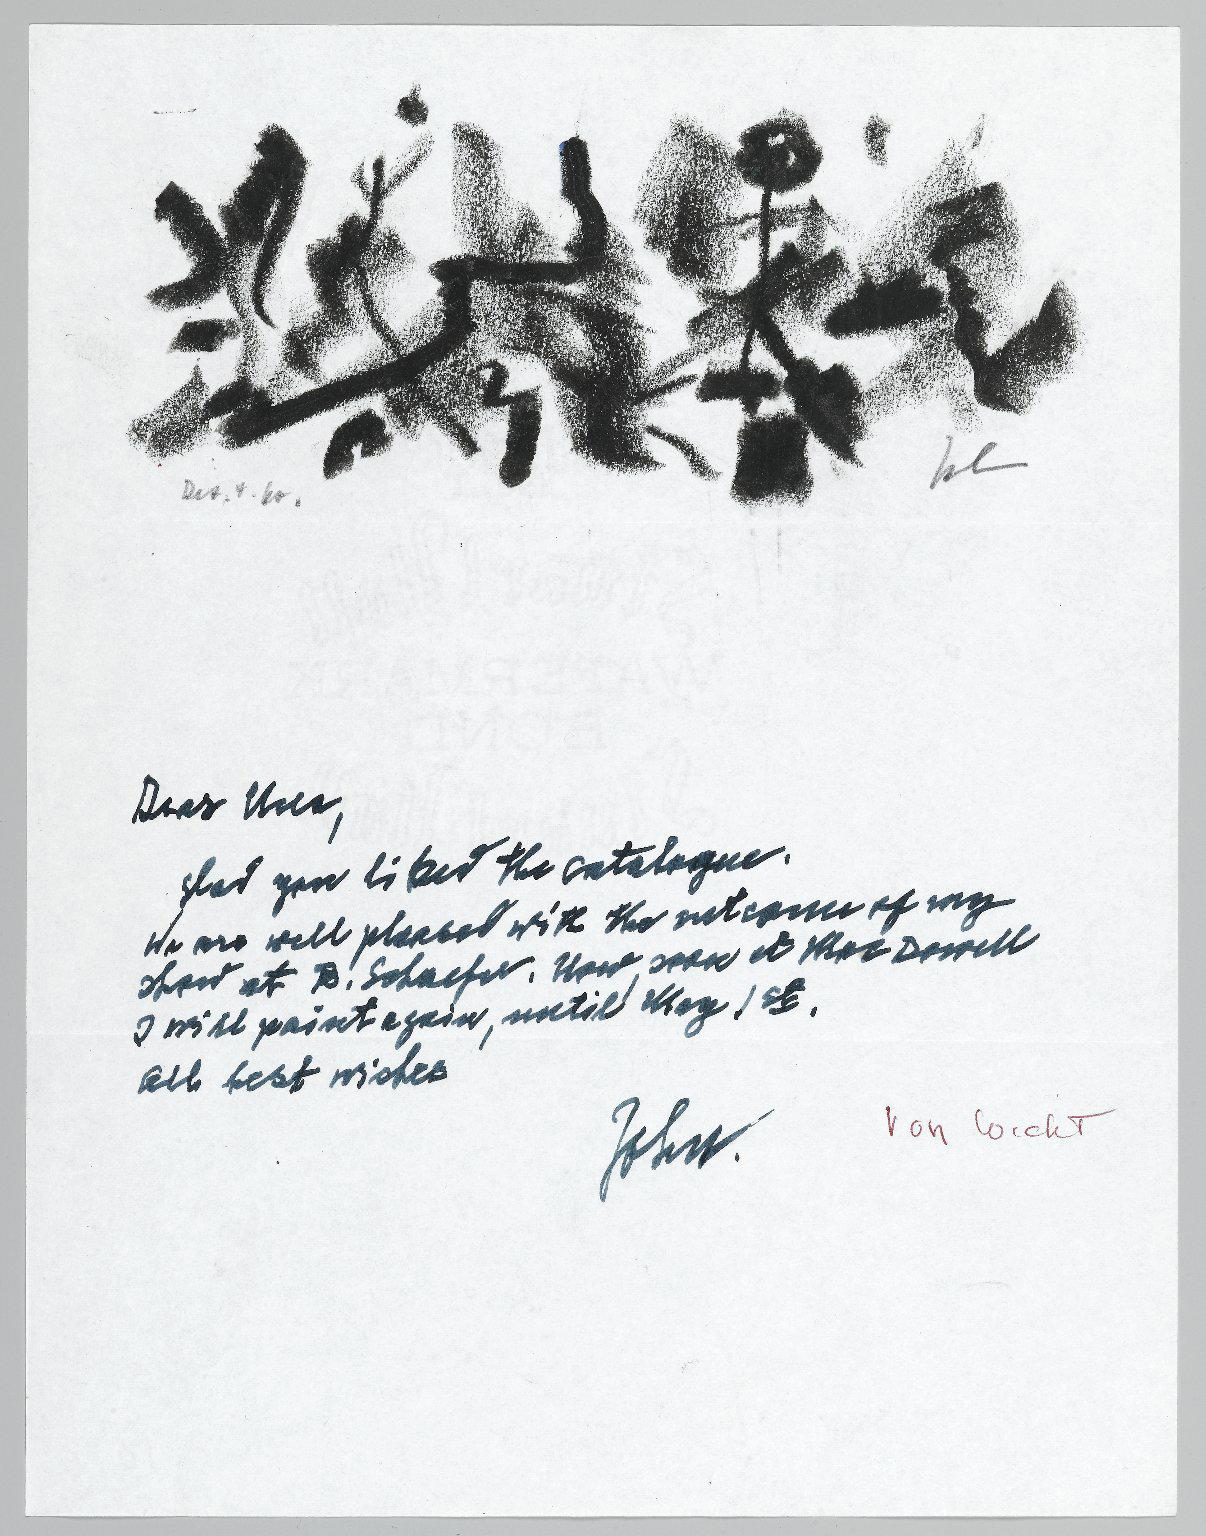 Dez. 4. 60.
John
Dear Una,
glad you liked the catalogue.
We are well pleased with the outcome of my
show at B. Schaefer. Now, soon at MacDowell
I will paint again, until May 1st.
All best wishes
John.
Von Wicht
WATERMARK
BOND